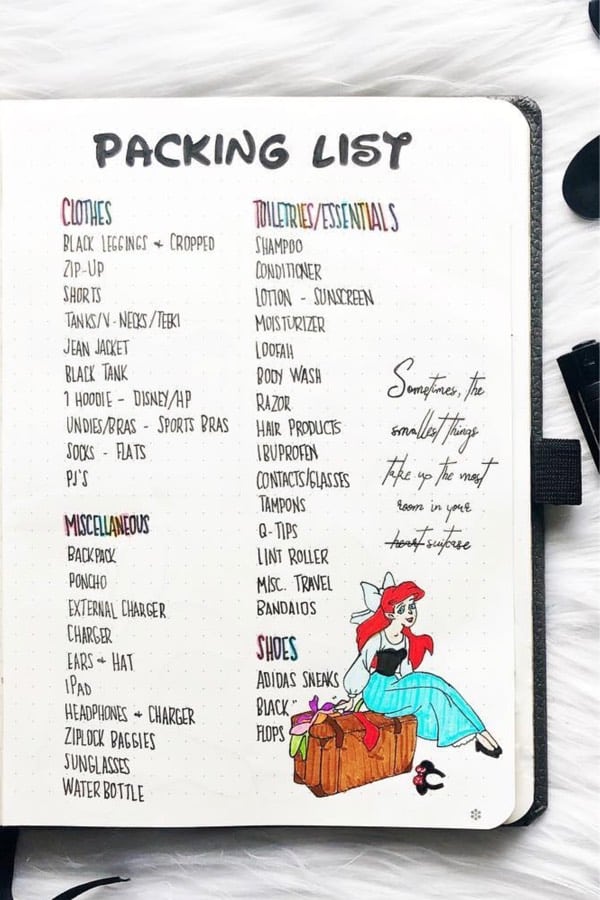 PACKING LIST
CLOTHES
BLACK LEGGINGS + CROPPED
ZIP-UP
SHORTS
TANKS/V-NECKS/TEEKI
JEAN JACKET
BLACK TANK
1 HOODIE - DISNEY/HP
UNDIES/BRAS - SPORTS BRAS
SOCKS - FLATS
PJ'S
MISCELLANEOUS
BACKPACK
PONCHO
EXTERNAL CHARGER
CHARGER
EARS + HAT
IPAD
HEADPHONES + CHARGER
ZIPLOCK BAGGIES
SUNGLASSES
WATER BOTTLE
TOILETRIES/ESSENTIALS
SHAMPOO
CONDITIONER
LOTION - SUNSCREEN
MOISTURIZER
LOOFAH
BODY WASH
RAZOR
HAIR PRODUCTS
IBUPROFEN
CONTACTS/GLASSES
TAMPONS
Q-TIPS
LINT ROLLER
MISC. TRAVEL
BANDAIDS
SHOES
ADIDAS SNEAKS
BLACK "
FLOPS
Sometimes, the
smallest things
take up the most
room in your
heart suitcase